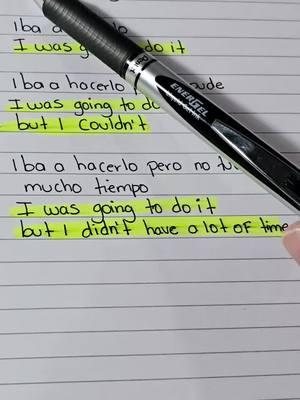 Iba a
I was do it
Iba a hacerlo
I was going to do
but I couldn't
Iba a hacerlo pero no
mucho tiempo
I was going to do it
but I didn't have a lot of time
ENERGEL